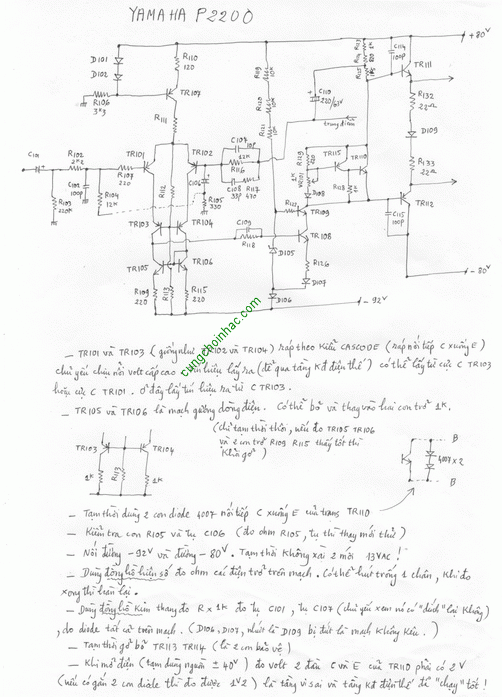 YAMAHA P2200
+80V
D101
D102
R110
120
TR107
R106
3k3
R111
R119
10k
R120
10k
R121
10k
C110
220/63V
trung điểm
C114
100p
TR111
R132
22Ω
D109
R133
22Ω
TR112
C115
100p
C101
R102
2k2
R103
220k
C102
100p
R104
12k
R107
220
TR101
TR102
R112
C106
R105
330
C107
10p
12k
R116
C108
33p
R117
470
TR103
TR104
C109
R118
TR105
TR106
R109
220
R113
R115
220
D105
D106
R122
TR109
TR108
R126
D107
R129
VR101
D108
TR115
TR110
R128
-80V
-92V
cungchoinhac.com
_ TR101 và TR103 (giống như TR102 và TR104) ráp theo kiểu CASCODE (ráp nối tiếp C xuống E)
chủ yếu chịu nổi volt cấp cao. Tín hiệu lấy ra (để qua tầng KĐ điện thế) có thể lấy từ cực C TR103
hoặc cực C TR101. Ở đây lấy tín hiệu ra từ C TR103.
_ TR105 và TR106 là mạch gương dòng điện. Có thể bỏ và thay vào hai con trở 1K.
(chỉ tạm thời thôi, nếu đo TR105 TR106
và 2 con trở R109 R115 thấy tốt thì
khỏi gỡ)
TR103
TR104
1k
R113
1k
B
4007 x 2
B
_ Tạm thời dùng 2 con diode 4007 nối tiếp C xuống E của trans TR110
_ Kiểm tra con R105 và tụ C106 (đo ohm R105, tụ thì thay mới thử)
_ Nối đường -92V và đường -80V. Tạm thời không xài 2 mối 13VAC!
_ Dùng đồng hồ hiện số đo ohm các điện trở trên mạch. Có thể hút trống 1 chân, khi đo
xong thì hàn lại.
_ Dùng đồng hồ kim thang đo R x 1k đo tụ C101, tụ C107 (chủ yếu xem nó có "dính" lại không)
, đo diode tất cả trên mạch. (D106, D107, nhất là D109 bị đứt là mạch không kêu.)
_ Tạm thời gỡ bỏ TR113 TR114 (là 2 con bảo vệ)
_ Khi mở điện (tạm dùng nguồn ± 40V) đo volt 2 đầu C và E của TR110 phải có 2V
(nếu có gắn 2 con diode thì đo được 1V2) là tầng vi sai và tầng KĐ điện thế đã "chạy" tốt!